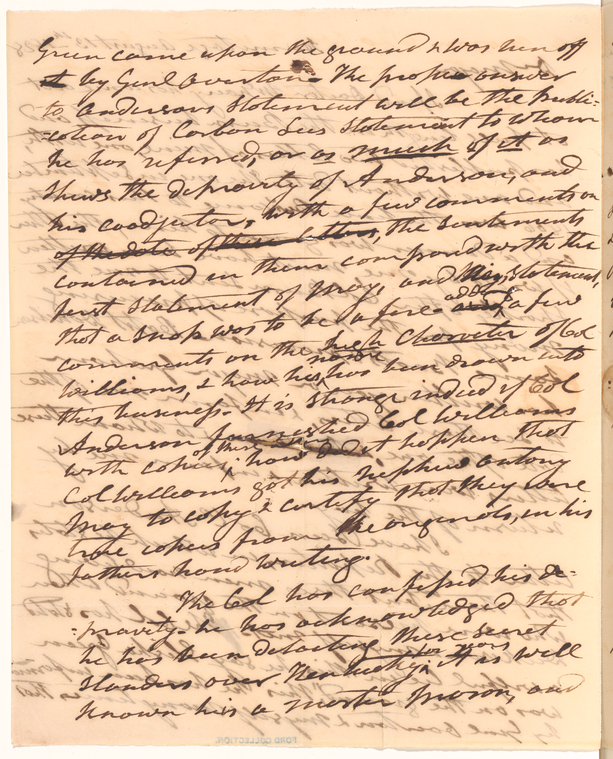 Green came upon the ground & was run off
by Genl Overton - The proper answer
to Andersons Statement will be the Publi-
cation of Corban Lees Statement to whom
he has referred, or as much of it as
shews the depravity of Anderson, and
his coadjetors, with a few comments on
of the date of these letters, the sentiments
contained in them compared with the
first Statement of Mays, and his, statement,
that a snap was to be a fire - add a few
comments on the high Charecter of Col
Williams, & how his name has been drawn into
this business - It is strange indeed if Col
Anderson furnished Col Williams
with copies, how it happen that
Col Williams got his nephew antony
May to copy & certify that they were
true copies from the originals, in his
fathers hand writing.
The Col has confessed his de-
pravity - he has acknowledged that
he has been detailing these secret
slanders over Kentucky, for years It is well
known he is a master mason, and
FORD COLLECTION